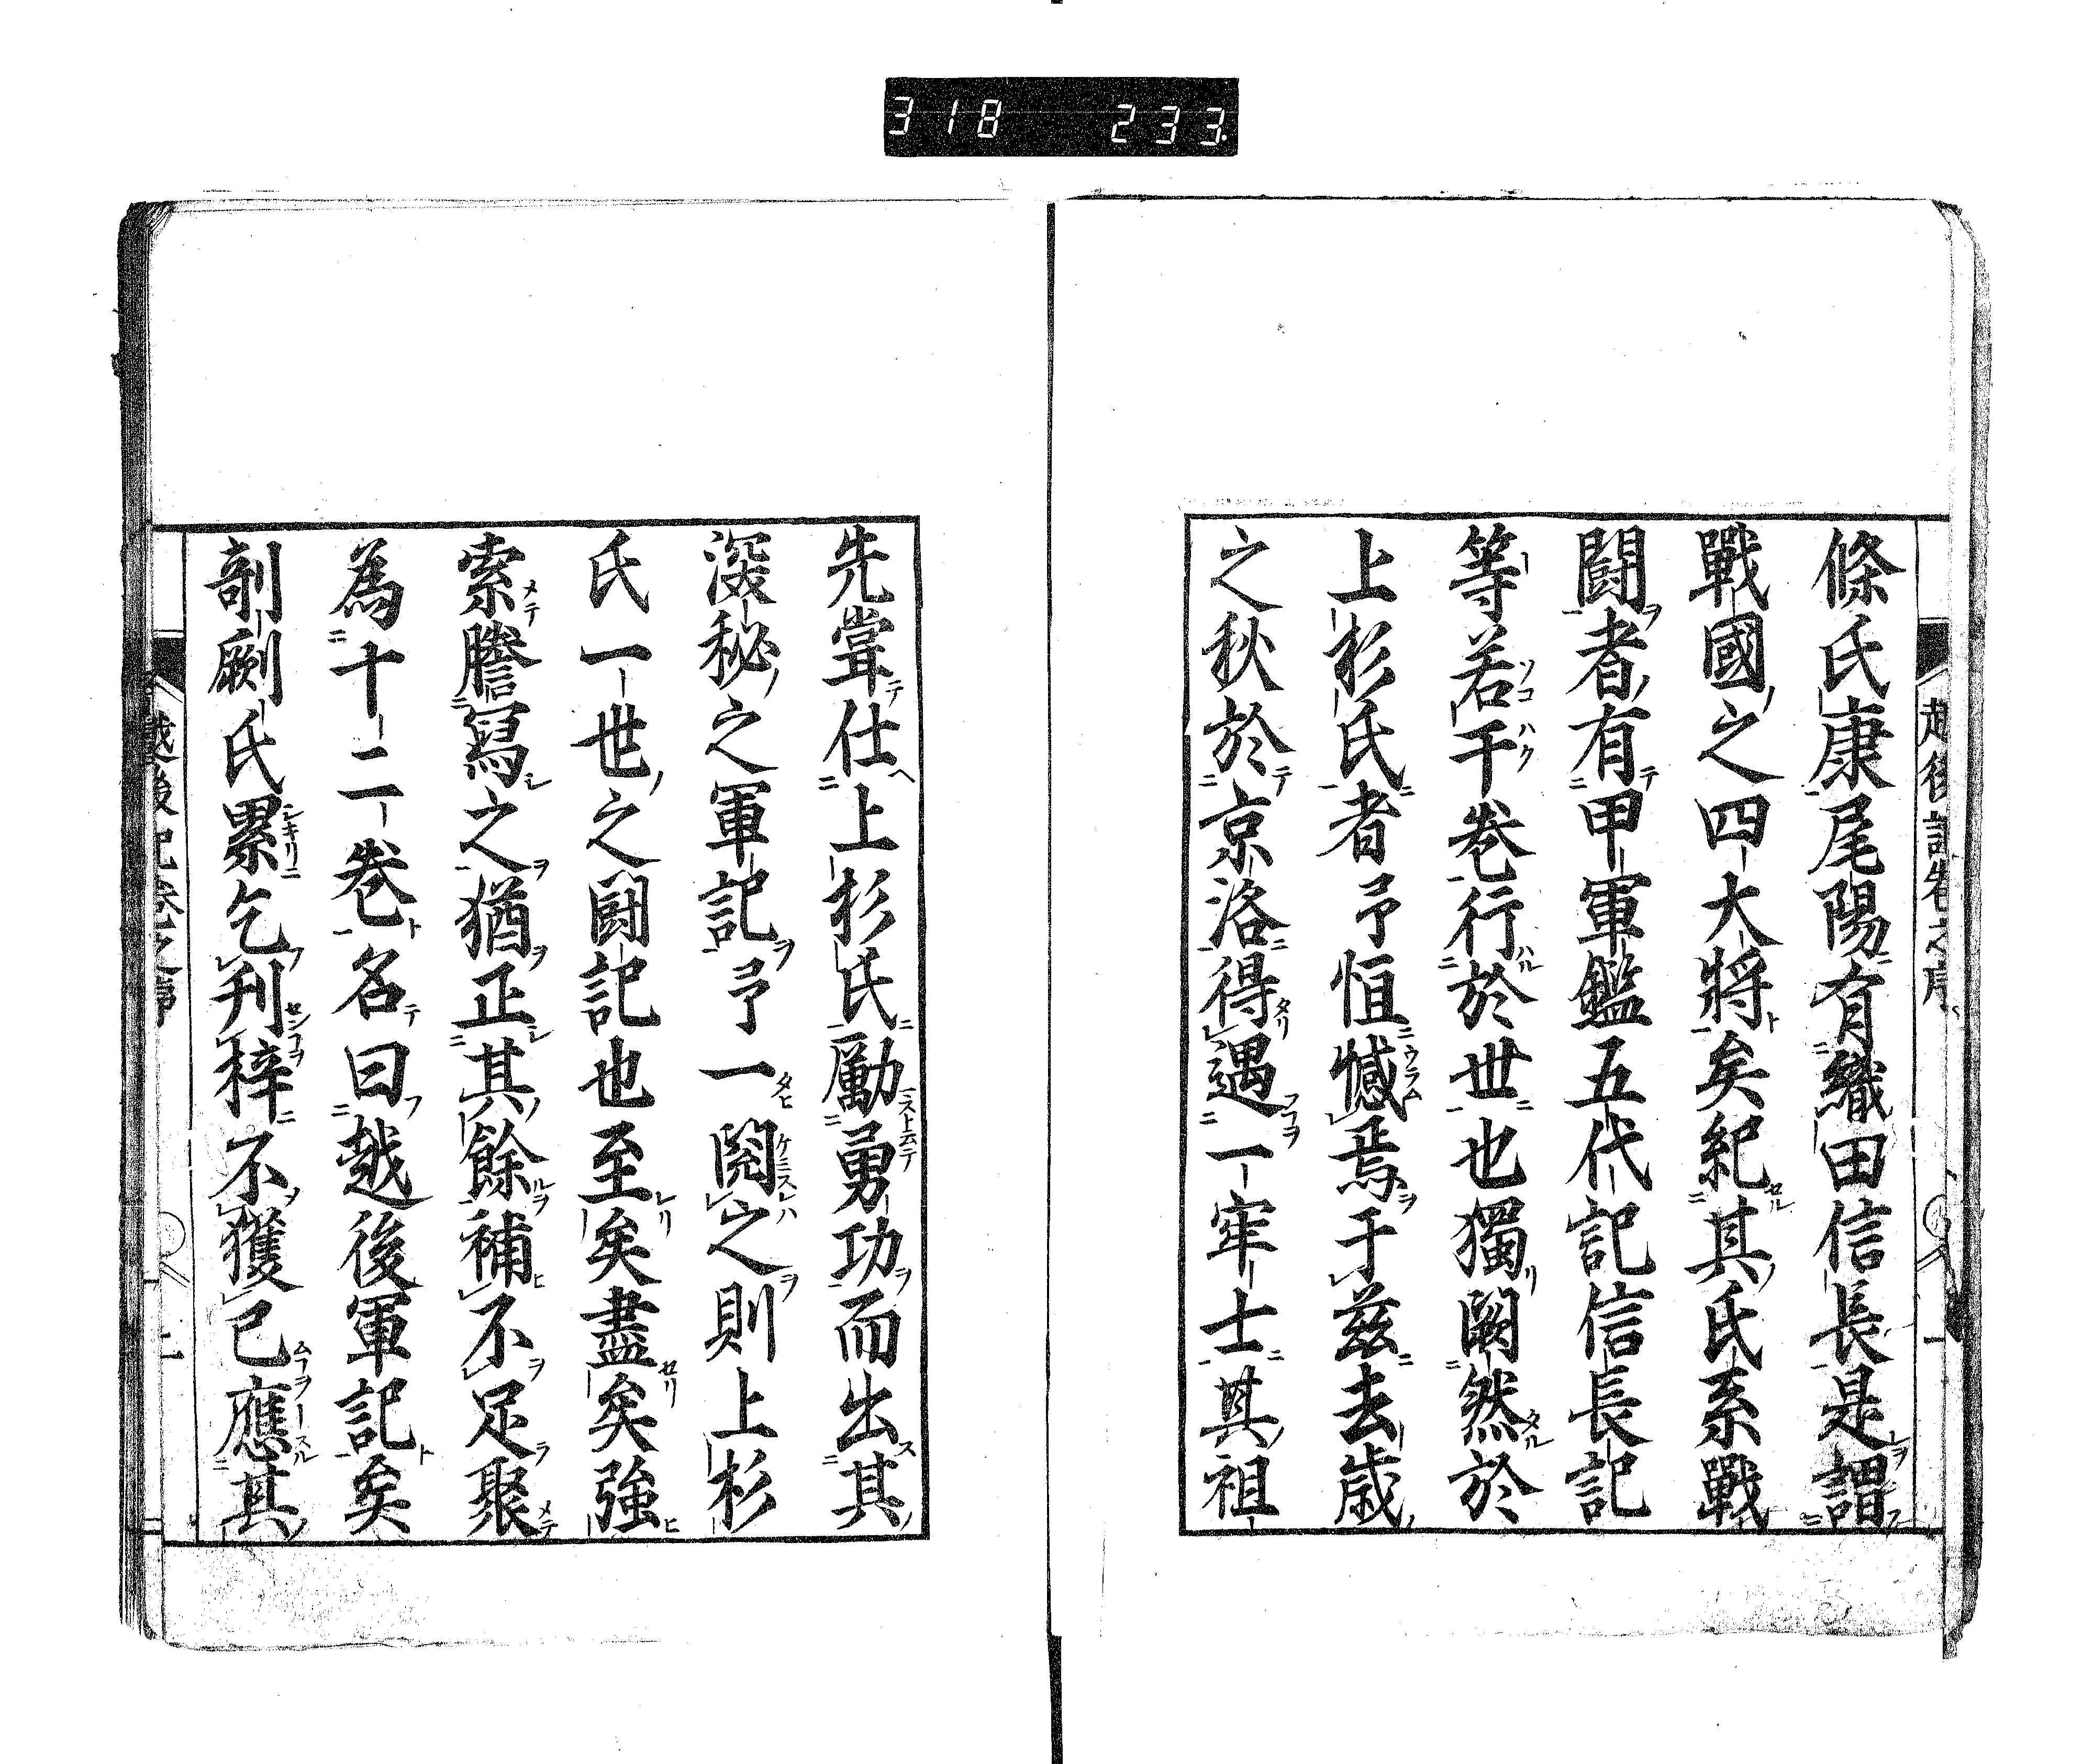 318 233
條氏康尾陽有織田信長是謂
戰國之四大將矣紀其氏系戰
鬪者有甲軍鑑五代記信長記
等若干卷行於世也獨闕然於
上杉氏者予恒憾焉于茲去歳
之秋於京洛得遇一牢士其祖
先嘗仕上杉氏勵勇功而出其
深秘之軍記予一閲之則上杉
氏一世之鬪記也至矣盡矣強
索謄寫之猶正其餘補不足聚
為十二卷名曰越後軍記矣
剞劂氏累乞刋梓不獲已應其